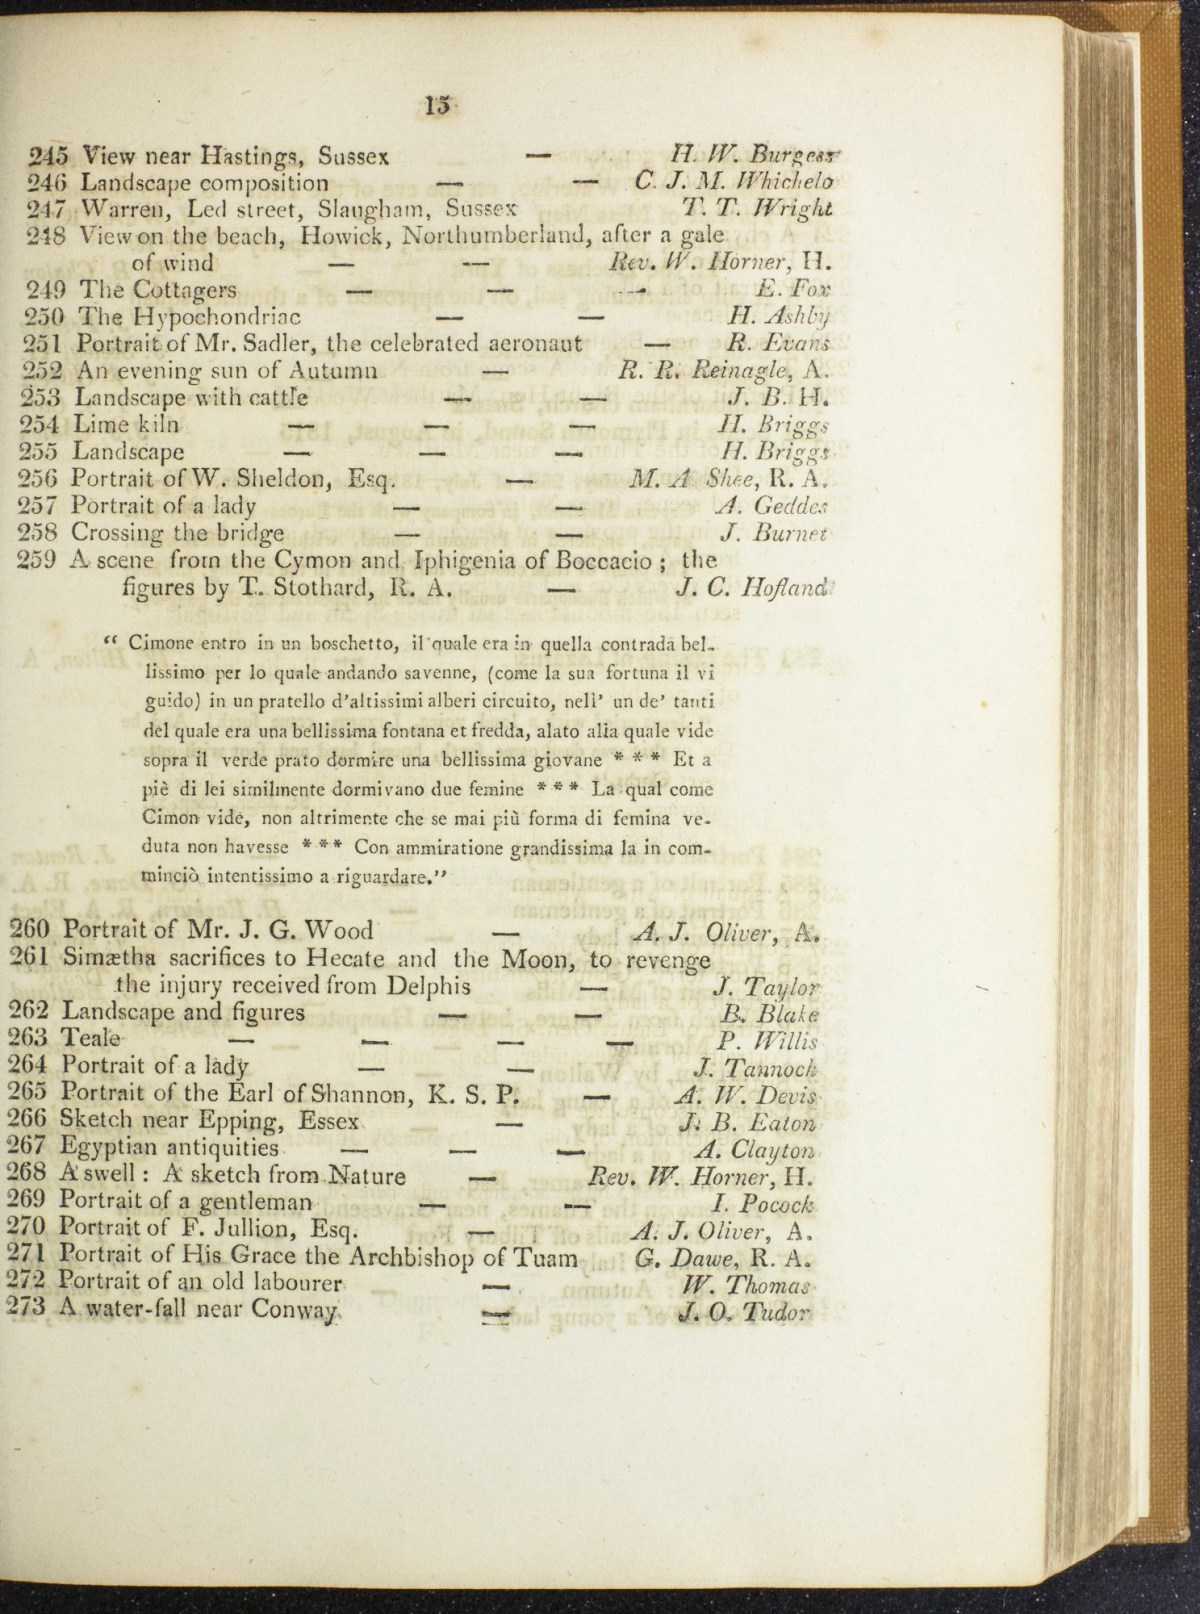 15
245 View near Hastings, Sussex — H. W. Burgess
246 Landscape composition — — C. J. M. Whichelo
247 Warren, Led street, Slaugham, Sussex T. T. Wright
248 View on the beach, Howick, Northumberland, after a gale
of wind — — Rev. W. Horner, H.
249 The Cottagers — — — E. Fox
250 The Hypochondriac — — H. Ashby
251 Portrait of Mr. Sadler, the celebrated aeronaut — R. Evans
252 An evening sun of Autumn — R. R. Reinagle, A.
253 Landscape with cattle — — J. B. H.
254 Lime kiln — — — H. Briggs
255 Landscape — — — H. Briggs
256 Portrait of W. Sheldon, Esq. — M. A. Shee, R. A.
257 Portrait of a lady — — A. Geddes
258 Crossing the bridge — — J. Burnet
259 A scene from the Cymon and Iphigenia of Boccacio ; the
figures by T. Stothard, R. A. — J. C. Hofland
“ Cimone entro in un boschetto, il quale era in quella contrada bel-
lissimo per lo quale andando savenne, (come la sua fortuna il vi
guido) in un pratello d'altissimi alberi circuito, nell' un de' tanti
del quale era una bellissima fontana et fredda, alato alla quale vide
sopra il verde prato dormire una bellissima giovane * * * Et a
piè di lei similmente dormivano due femine * * * La qual come
Cimon vide, non altrimente che se mai più forma di femina ve-
duta non havesse * * * Con ammiratione grandissima la in com-
minciò intentissimo a riguardare.”
260 Portrait of Mr. J. G. Wood — A. J. Oliver, A.
261 Simætha sacrifices to Hecate and the Moon, to revenge
the injury received from Delphis — J. Taylor
262 Landscape and figures — — B. Blake
263 Teale — — — — P. Willis
264 Portrait of a lady — — J. Tannock
265 Portrait of the Earl of Shannon, K. S. P. — A. W. Devis
266 Sketch near Epping, Essex — J. B. Eaton
267 Egyptian antiquities — — — A. Clayton
268 A swell : A sketch from Nature — Rev. W. Horner, H.
269 Portrait of a gentleman — — I. Pocock
270 Portrait of F. Jullion, Esq. — A. J. Oliver, A.
271 Portrait of His Grace the Archbishop of Tuam G. Dawe, R. A.
272 Portrait of an old labourer — W. Thomas
273 A water-fall near Conway — J. O. Tudor